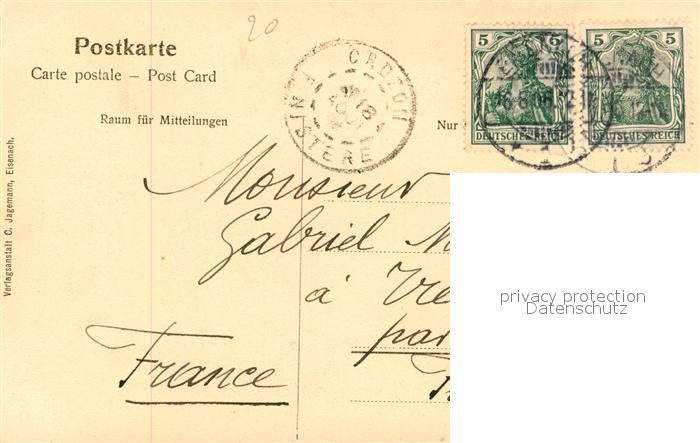 20
Postkarte
Carte postale – Post Card
Raum für Mitteilungen
Nur
CROZON
FINISTERE
18
5 5
DEUTSCHES REICH
5 5
DEUTSCHES REICH
Monsieur
Gabriel M
à
par
France
Verlagsanstalt C. Jagemann, Eisenach.
privacy protection
Datenschutz